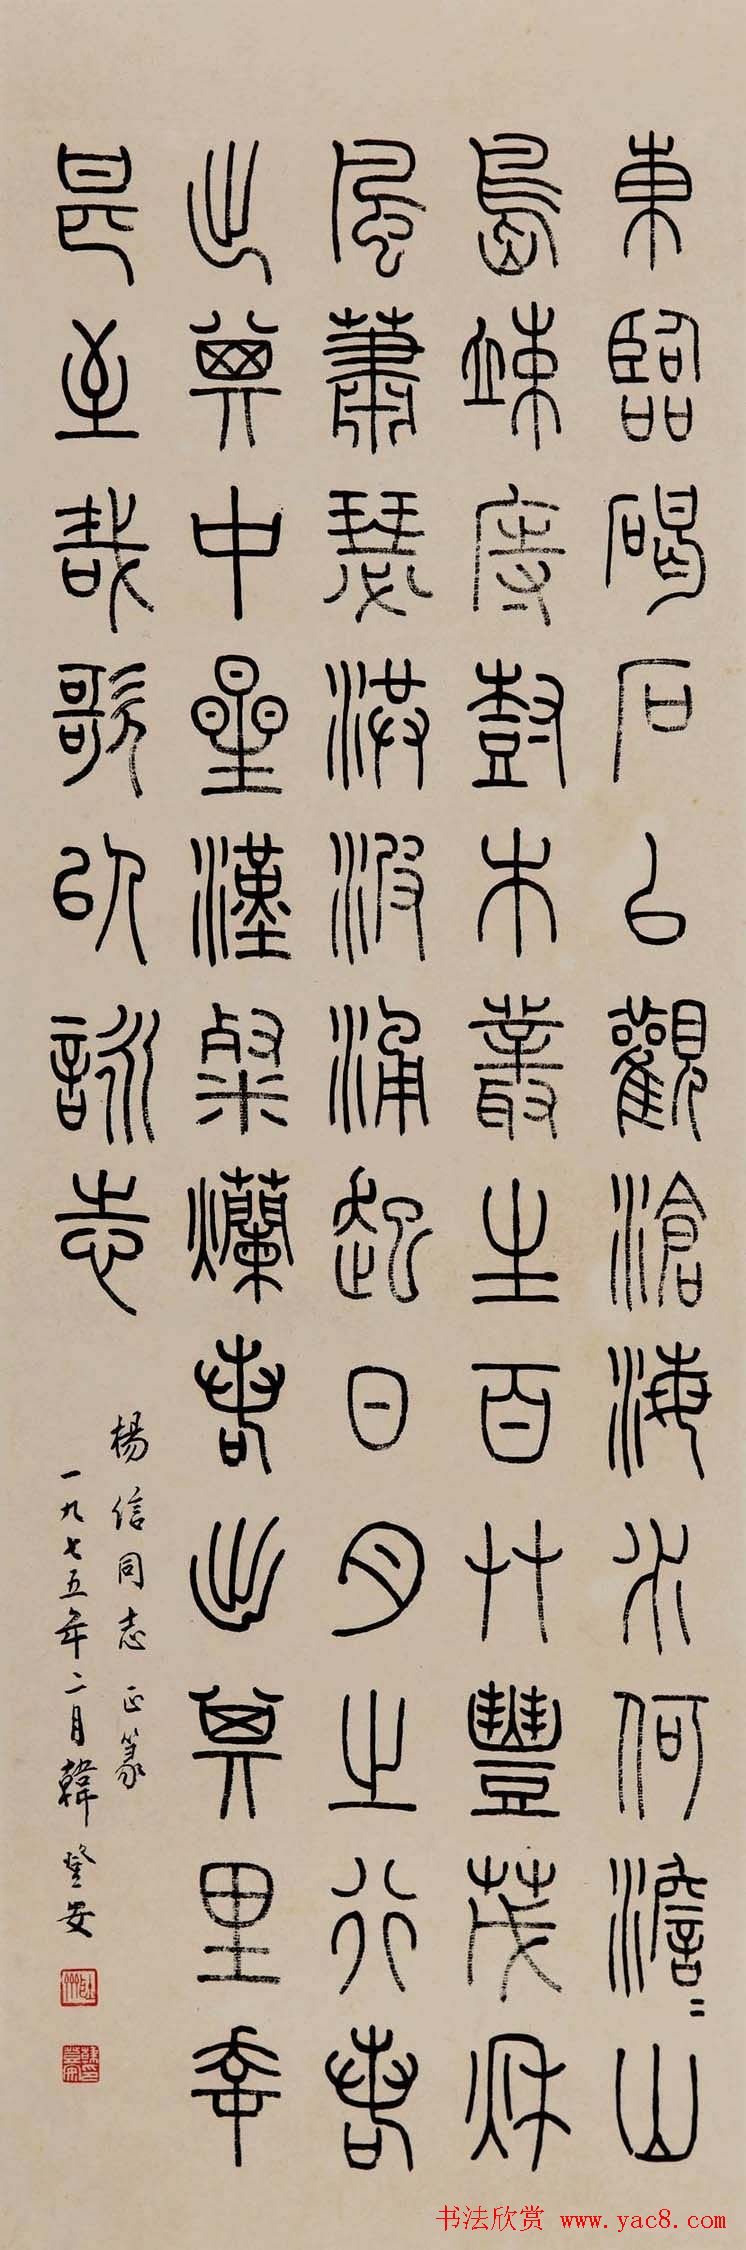 東臨碣石㠯觀滄海水何澹二山
島竦庤尌木叢生百艸豐茂秋
風蕭瑟洪波涌起日月之行若
出其中星漢粲爛若出其里幸
甚至哉歌㠯詠志
楊信同志正篆
一九七五年二月韓登安
书法欣赏 www.yac8.com